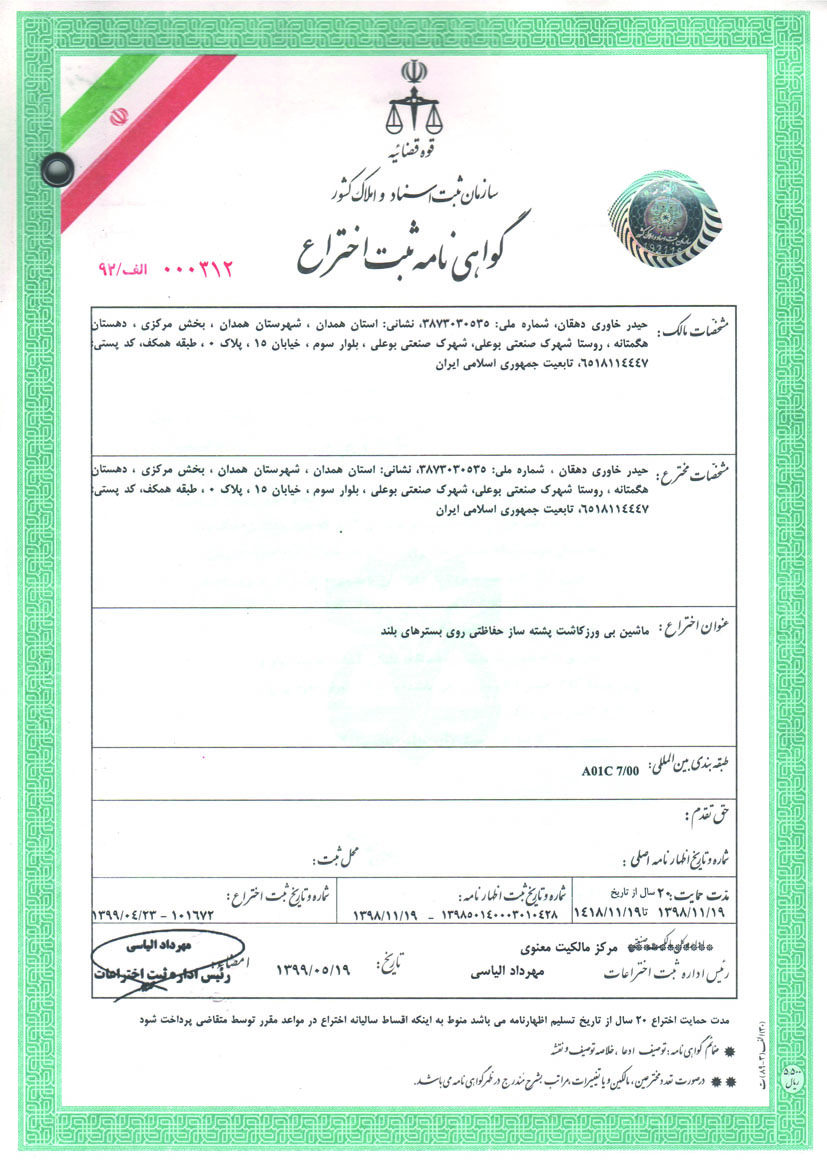 قوه قضائیه
سازمان ثبت اسناد و املاک کشور
گواهی نامه ثبت اختراع
۰۰۰۳۱۲ الف/۹۲
مشخصات مالک: حیدر خاوری دهقان، شماره ملی: ۳۸۷۳۰۳۰۵۳۵، نشانی: استان همدان ، شهرستان همدان ، بخش مرکزی ، دهستان
هگمتانه ، روستا شهرک صنعتی بوعلی، شهرک صنعتی بوعلی ، بلوار سوم ، خیابان ۱۵ ، پلاک ۰ ، طبقه همکف، کد پستی:
۶۵۱۸۱۱٤٤٤۷، تابعیت جمهوری اسلامی ایران
مشخصات مخترع: حیدر خاوری دهقان ، شماره ملی: ۳۸۷۳۰۳۰۵۳۵، نشانی: استان همدان ، شهرستان همدان ، بخش مرکزی ، دهستان
هگمتانه ، روستا شهرک صنعتی بوعلی، شهرک صنعتی بوعلی ، بلوار سوم ، خیابان ۱۵ ، پلاک ۰ ، طبقه همکف، کد پستی:
۶۵۱۸۱۱٤٤٤۷، تابعیت جمهوری اسلامی ایران
عنوان اختراع: ماشین بی ورزکاشت پشته ساز حفاظتی روی بسترهای بلند
طبقه بندی بین المللی: A01C 7/00
حق تقدم:
شماره و تاریخ اظهارنامه اصلی: محل ثبت:
مدت حمایت: ۲۰ سال از تاریخ
۱۳۹۸/۱۱/۱۹ تا ۱۴۱۸/۱۱/۱۹
شماره و تاریخ ثبت اظهارنامه:
۱۳۹۸۵۰۱۴۰۰۰۳۰۱۰۴۲۸ - ۱۳۹۸/۱۱/۱۹
شماره و تاریخ ثبت اختراع:
۱۰۱۶۷۲ - ۱۳۹۹/۰۴/۲۳
مرکز مالکیت معنوی
رئیس اداره ثبت اختراعات مهرداد الیاسی
تاریخ: ۱۳۹۹/۰۵/۱۹
امضاء:
مهرداد الیاسی
رئیس اداره ثبت اختراعات
مدت حمایت اختراع ۲۰ سال از تاریخ تسلیم اظهارنامه می باشد منوط به اینکه اقساط سالیانه اختراع در مواعد مقرر توسط متقاضی پرداخت شود
ضمائم گواهی نامه: توصیف ادعا ، خلاصه توصیف و نقشه
درصورت تعدد مخترعین، مالکین و یا تغییرات، مراتب بشرح مندرج در ظهر گواهی نامه می باشد.
۵۵۰۰
ریال